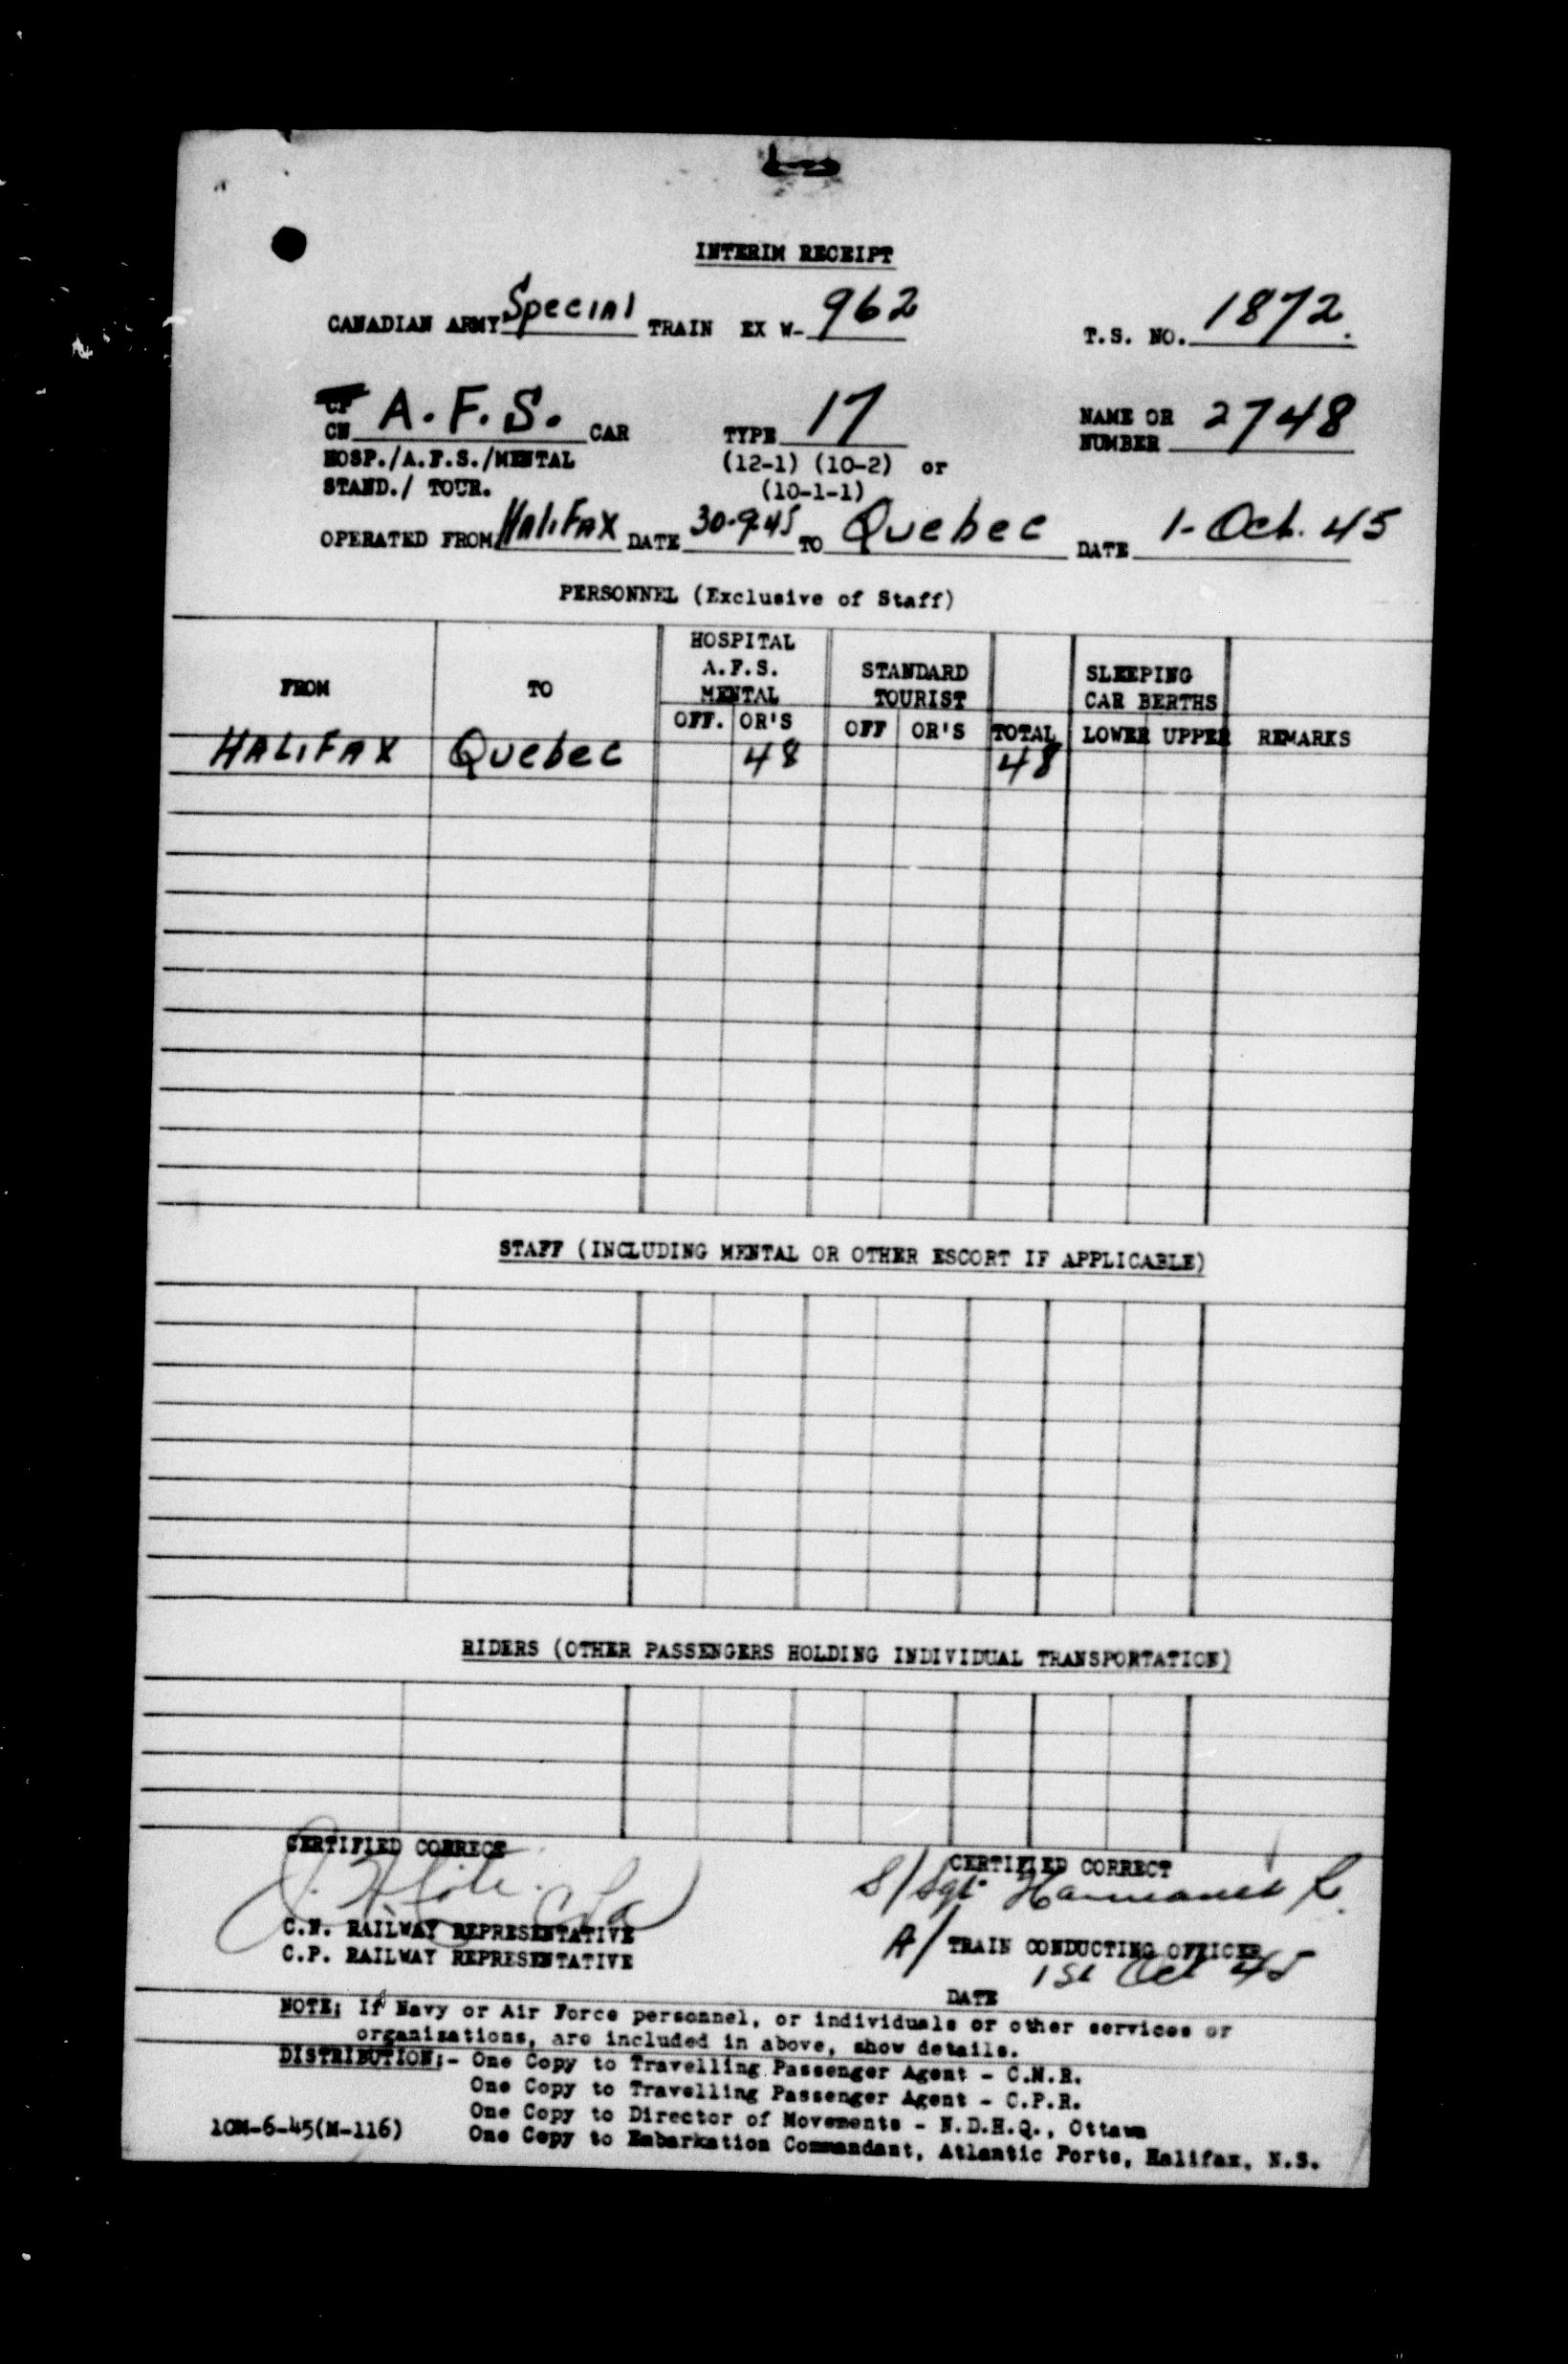 INTERIM RECEIPT
CANADIAN ARMY Special TRAIN EX W- 962 T.S. NO. 1872.
CP
CN A.F.S. CAR TYPE 17 NAME OR NUMBER 2748
HOSP./A.F.S./MENTAL (12-1) (10-2) or
STAND./ TOUR. (10-1-1)
OPERATED FROM Halifax DATE 30-9-45 TO Quebec DATE 1- Oct. 45
PERSONNEL (Exclusive of Staff)
FROM TO HOSPITAL A.F.S. MENTAL STANDARD TOURIST SLEEPING CAR BERTHS
OFF. OR'S OFF OR'S TOTAL LOWER UPPER REMARKS
HALIFAX Quebec 48 48
STAFF (INCLUDING MENTAL OR OTHER ESCORT IF APPLICABLE)
RIDERS (OTHER PASSENGERS HOLDING INDIVIDUAL TRANSPORTATION)
CERTIFIED CORRECT CERTIFIED CORRECT
S/Sgt
C.N. RAILWAY REPRESENTATIVE
C.P. RAILWAY REPRESENTATIVE
A/ TRAIN CONDUCTING OFFICER
1st Oct 45
DATE
NOTE: If Navy or Air Force personnel, or individuals or other services or
organizations, are included in above, show details.
DISTRIBUTION:- One Copy to Travelling Passenger Agent - C.N.R.
One Copy to Travelling Passenger Agent - C.P.R.
One Copy to Director of Movements - N.D.H.Q., Ottawa
One Copy to Embarkation Commandant, Atlantic Ports, Halifax, N.S.
10M-6-45(M-116)